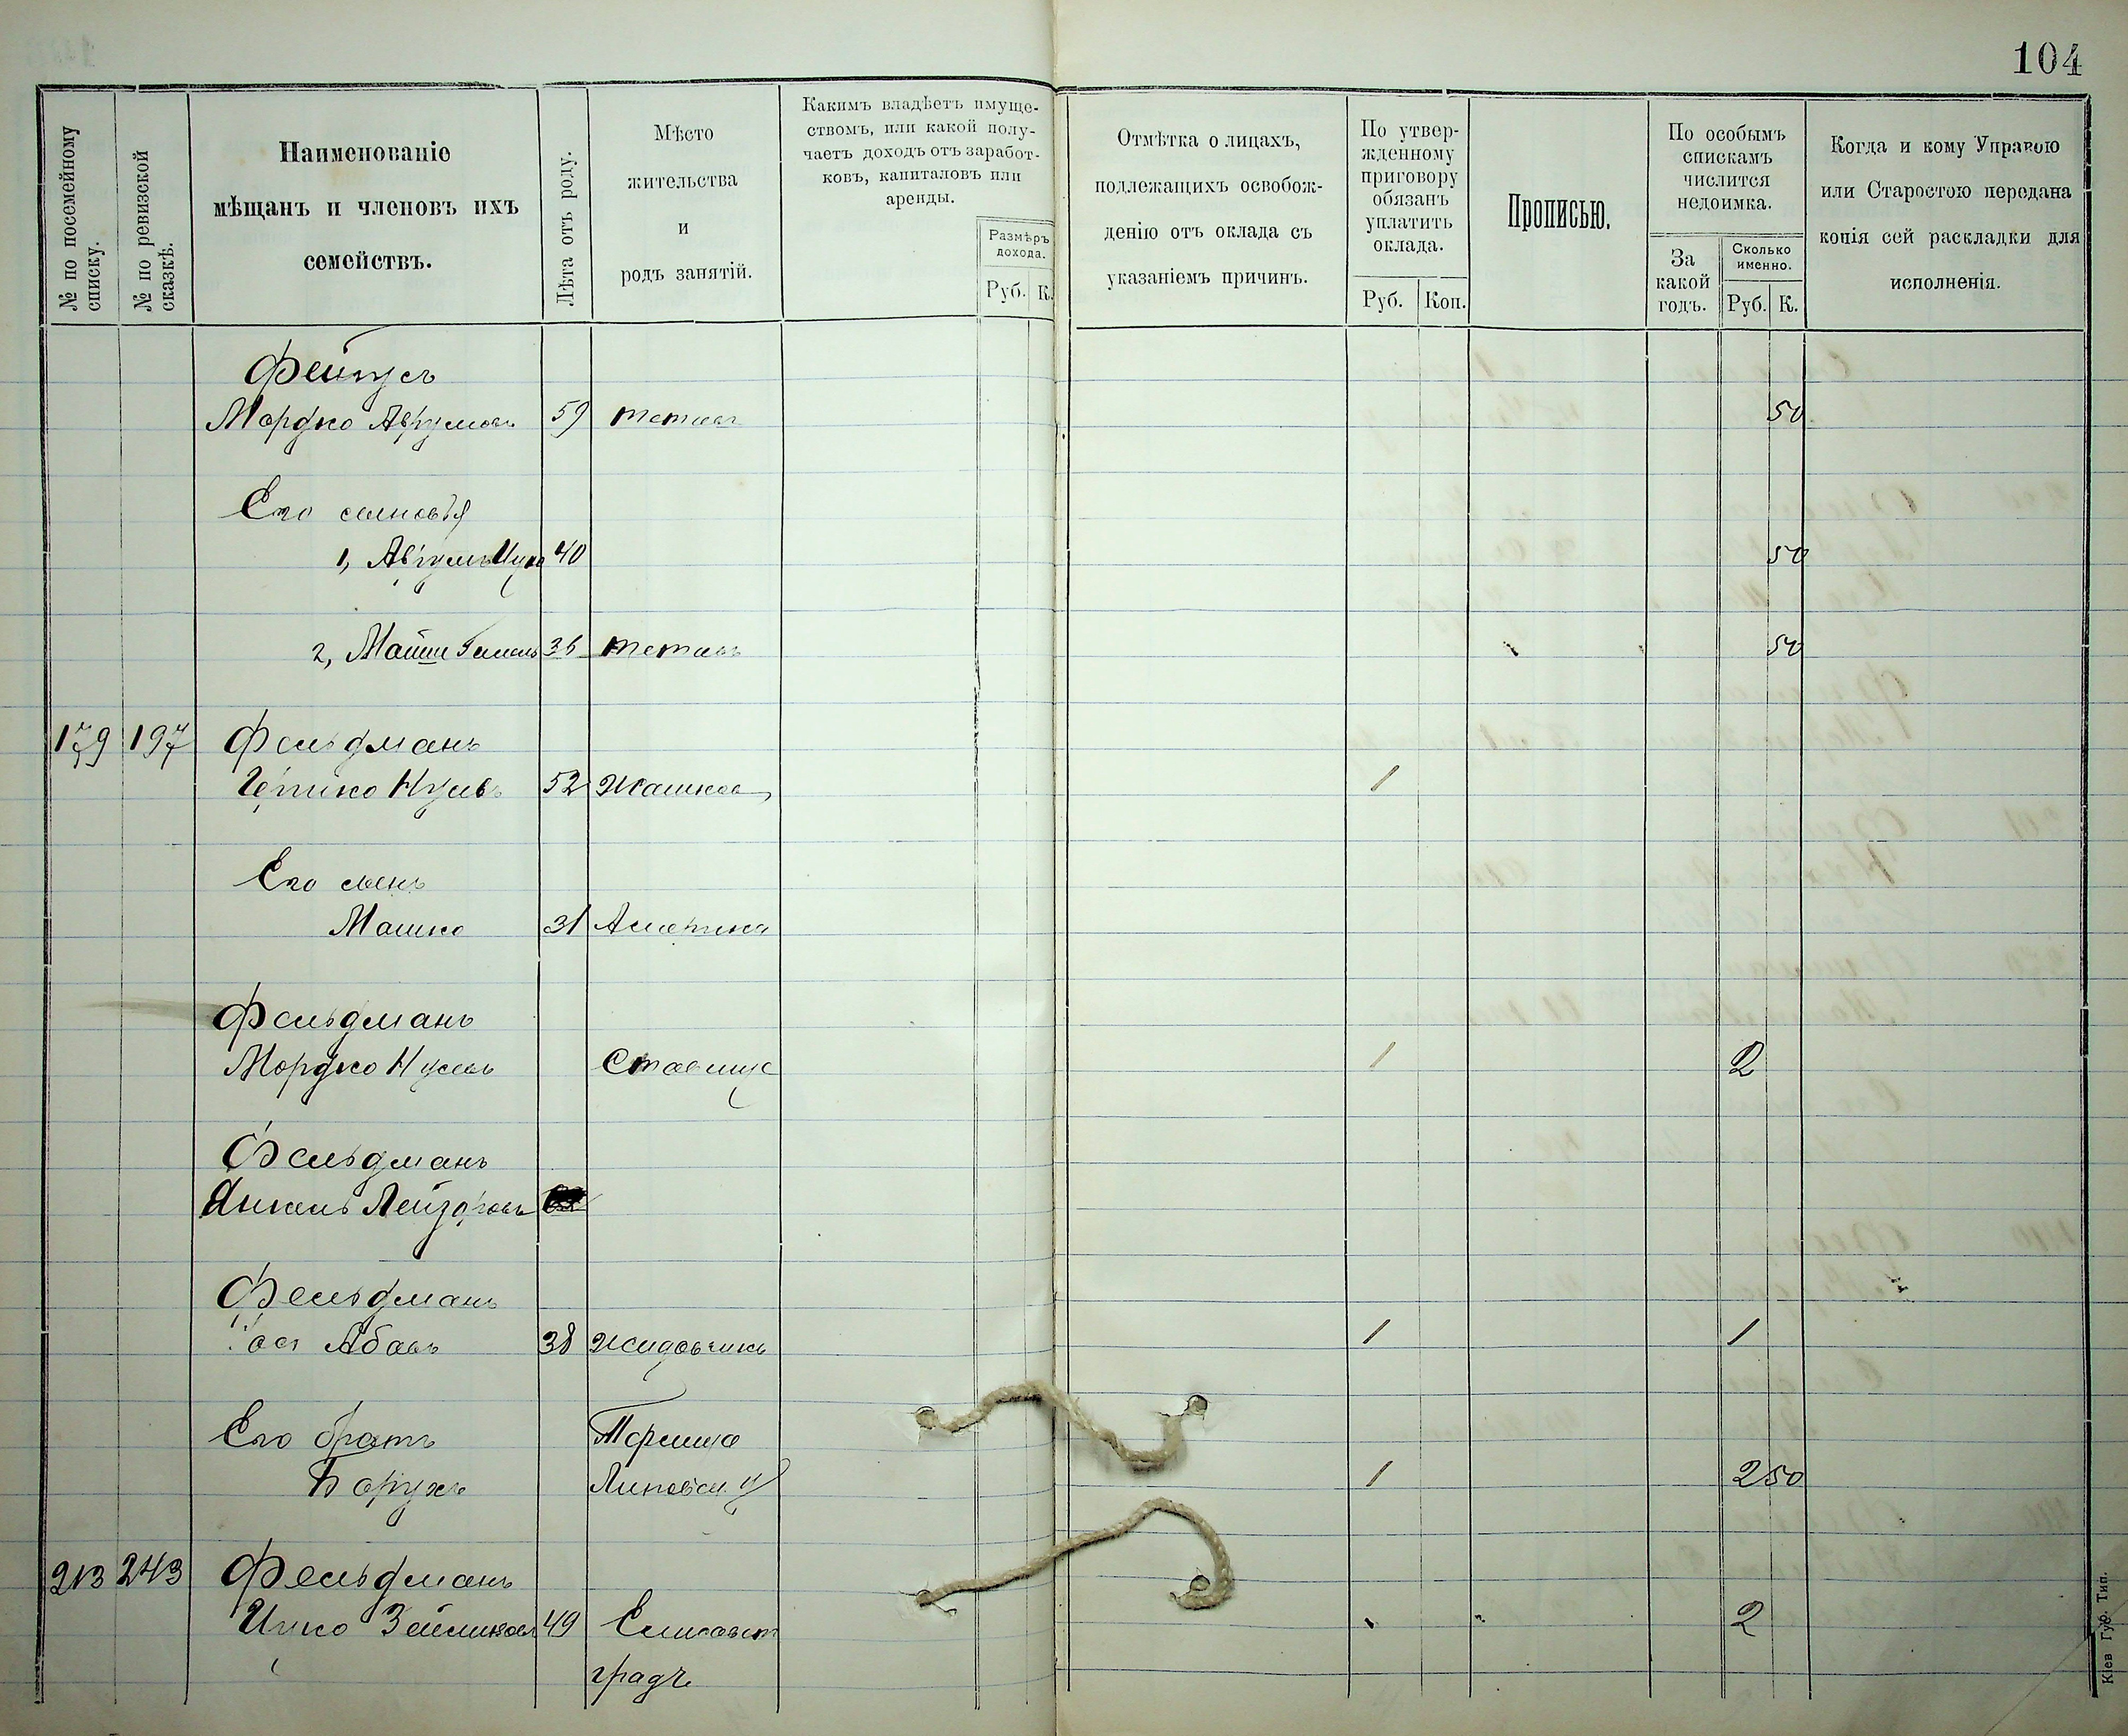 104
№ по посемейному списку.
№ по ревизской сказкѣ.
Наименованіе
мѣщанъ и членовъ ихъ
семействъ.
Лѣта отъ роду.
Мѣсто
жительства
и
родъ занятій.
Какимъ владѣетъ имуще-
ствомъ, или какой полу-
чаетъ доходъ отъ заработ-
ковъ, капиталовъ или
аренды.
Размѣръ
дохода.
Руб. К.
Отмѣтка о лицахъ,
подлежащихъ освобож-
денію отъ оклада съ
указаніемъ причинъ.
По утвер-
жденному
приговору
обязанъ
уплатить
оклада.
Руб. Коп.
Прописью.
По особымъ
спискамъ
числится
недоимка.
За
какой
годъ.
Сколько
именно.
Руб. К.
Когда и кому Управою
или Старостою передана
копія сей раскладки для
исполненія.
Мордко Аврумовъ 59 50
Его сыновья
1, Аврумъ Ицко 40 50
2, 50
179 197 Фельдманъ
Гершко Нусевъ 52 Жашковъ 1
Его сынъ
Машко 31 Америка
Фельдманъ
Мордко Нусевъ Ставище 1 2
Фельдманъ
Янкель Лейзоровъ
Фельдманъ
Абовъ 38 Жидовчикъ 1 1
Его братъ
Борухъ 1 2 50
213 243 Фельдманъ
Ицко 49 Елисавет 2
градъ
Кіев Губ. Тип.